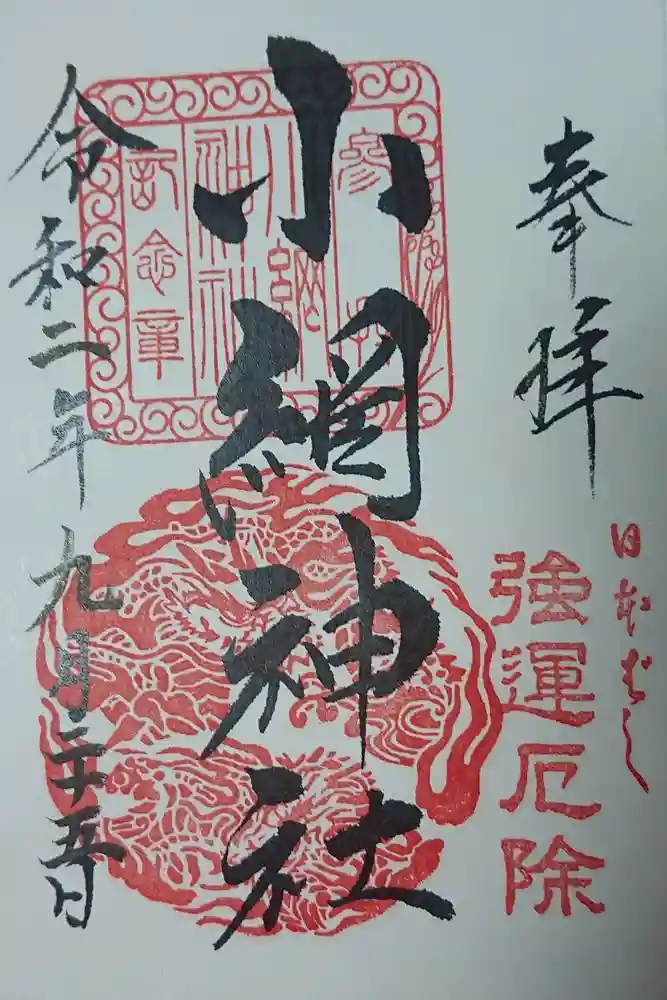 奉拝
日本ばし
強運厄除
小網神社
參拝
小網
神社
記念章
令和二年九月二十五日